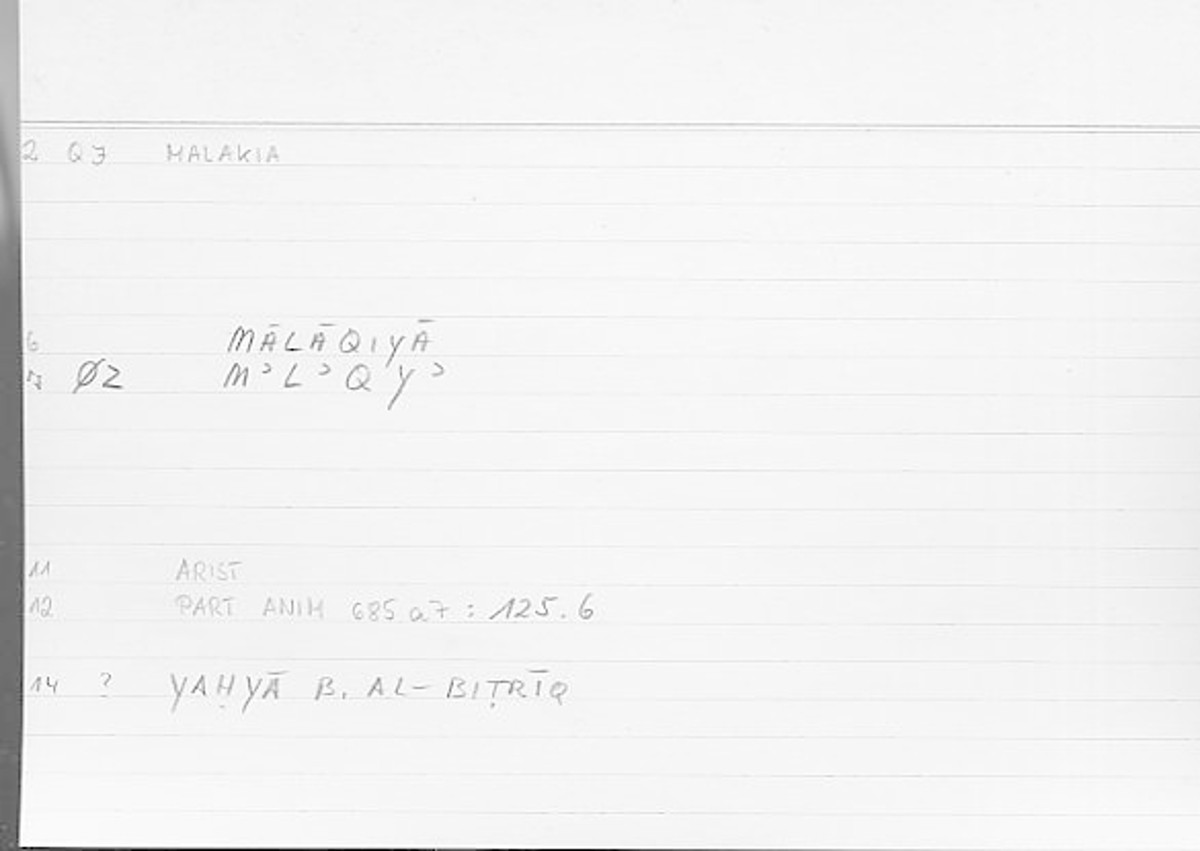 2 QJ MALAKIA
6 MĀLĀQIYĀ
7 ØZ MʾLʾQYʾ
11 ARIST
12 PART ANIM 685a7 : 125.6
14 ? YAḤYĀ B. AL-BIṬRĪQ